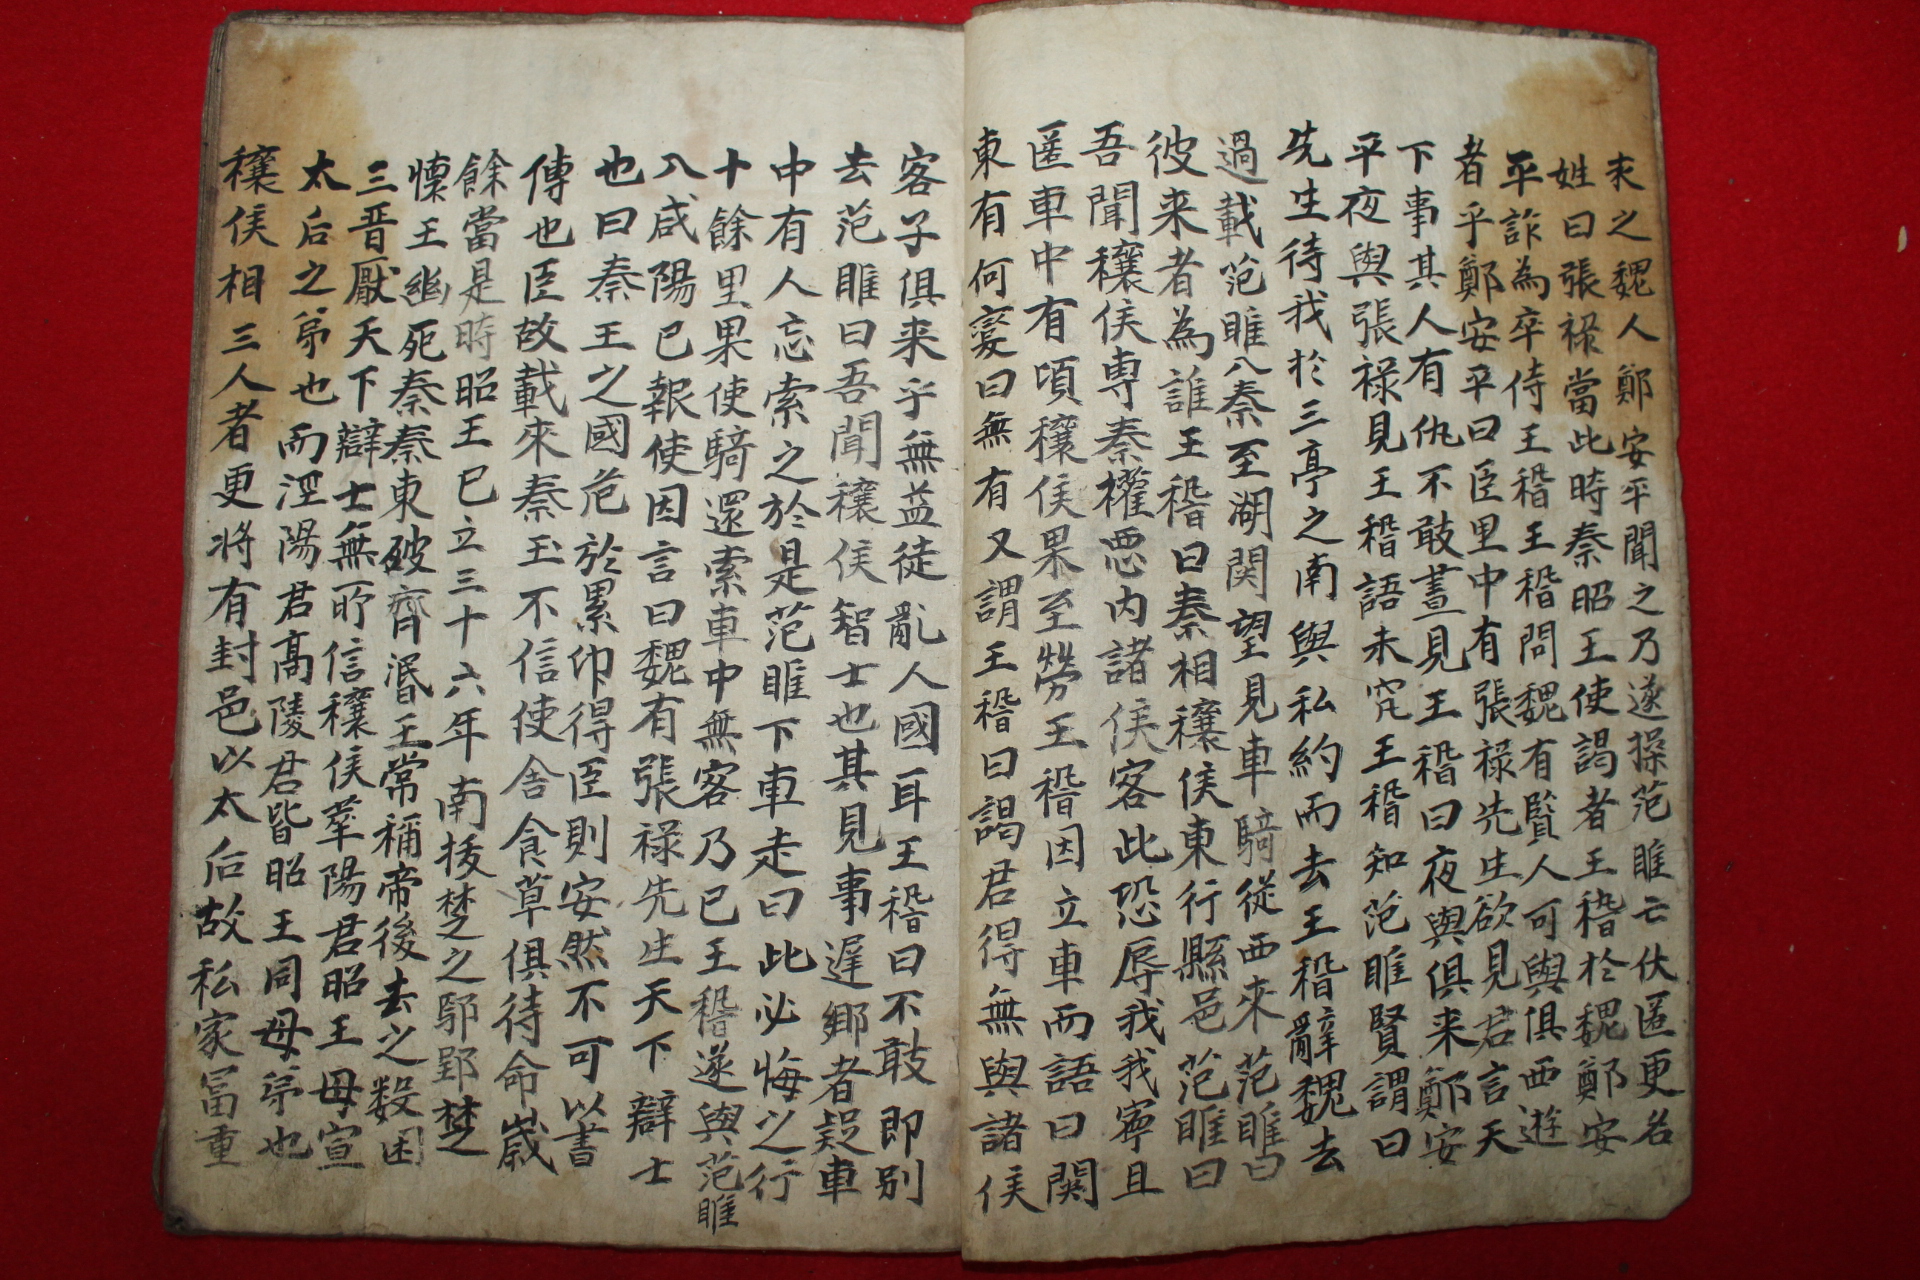 求之魏人鄭安平聞之乃遂操范睢亡伏匿更名
姓曰張祿當此時秦昭王使謁者王稽於魏鄭安
平詐為卒侍王稽王稽問魏有賢人可與俱西遊
者乎鄭安平曰臣里中有張祿先生欲見君言天
下事其人有仇不敢晝見王稽曰夜與俱来鄭安
平夜與張祿見王稽語未究王稽知范睢賢謂曰
先生待我於三亭之南與私約而去王稽辭魏去
過載范睢入秦至湖関望見車騎從西來范睢曰
彼来者為誰王稽曰秦相穰侯東行縣邑范睢曰
吾聞穰侯専秦權惡内諸侯客此恐辱我我寧且
匿車中有頃穰侯果至勞王稽因立車而語曰関
東有何変曰無有又謂王稽曰謁君得無與諸侯
客子俱来乎無益徒亂人國耳王稽曰不敢即别
去范睢曰吾聞穰侯智士也其見事遅鄉者疑車
中有人忘索之於是范睢下車走曰此必悔之行
十餘里果使騎還索車中無客乃已王稽遂與范睢
入咸陽已報使因言曰魏有張祿先生天下辯士
也曰秦王之國危於累卵得臣則安然不可以書
傳也臣故載來秦王不信使舎食草俱待命歲
餘當是時昭王已立三十六年南拔楚之鄢郢楚
懷王幽死秦秦東破齊湣王常稱帝後去之数困
三晋厭天下辯士無所信穰侯華陽君昭王母宣
太后之弟也而涇陽君髙陵君皆昭王同母弟也
穰侯相三人者更将有封邑以太后故私家冨重